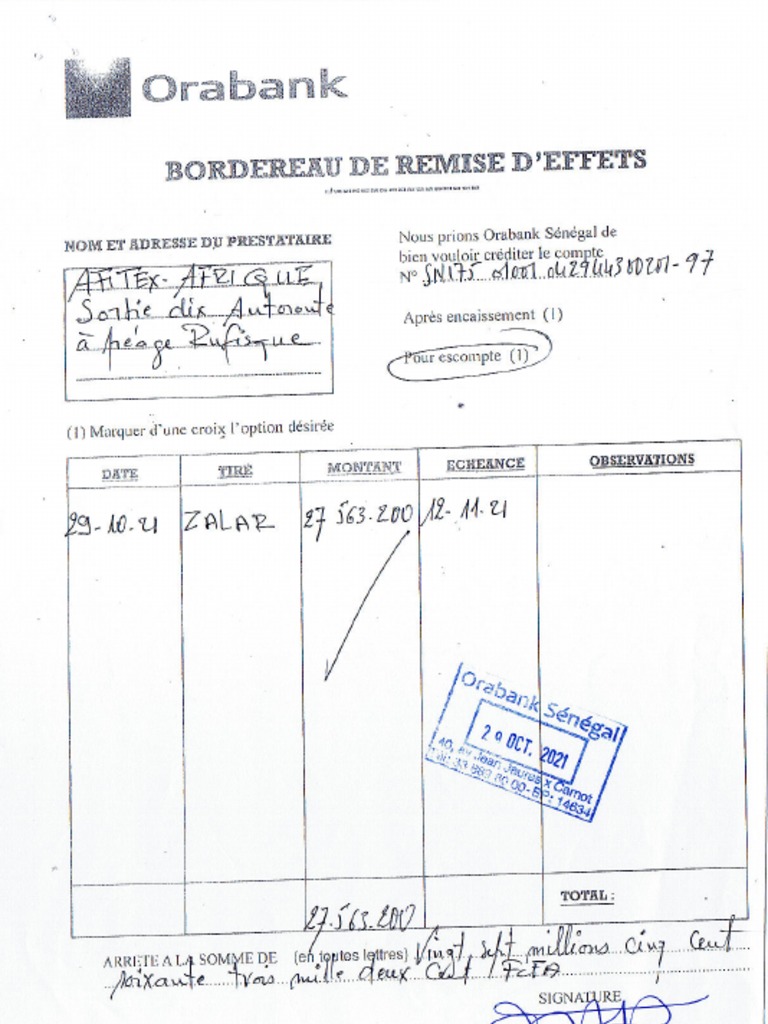 Orabank
BORDEREAU DE REMISE D'EFFETS
NOM ET ADRESSE DU PRESTATAIRE
AFITEX-AFRIQUE
Sortie dix Autoroute
à péage Rufisque
Nous prions Orabank Sénégal de
bien vouloir créditer le compte
N° SN175 01001
Après encaissement (1)
Pour escompte (1)
(1) Marquer d'une croix l'option désirée
DATE TIRÉ MONTANT ECHEANCE OBSERVATIONS
29-10-21 ZALAR 27 563.200 12-11-21
Orabank Sénégal
29 OCT. 2021
40, av Jean Jaures x Carnot
BP: 14634
TOTAL :
27.563.200
ARRETE A LA SOMME DE (en toutes lettres) Vingt sept millions cinq cent
soixante trois mille deux cent FCFA
SIGNATURE